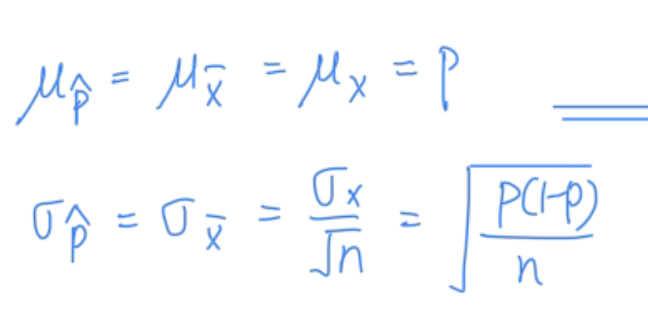 μ_p̂ = μ_x̄ = μ_x = p
σ_p̂ = σ_x̄ = σ_x/√n = √(p(1-p)/n)